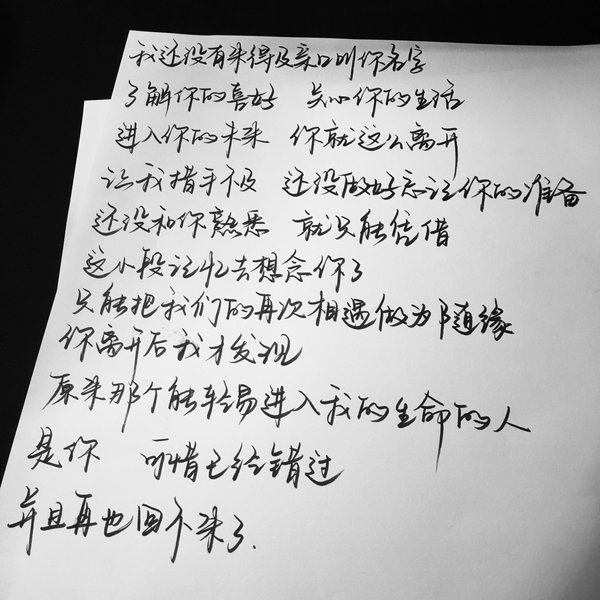 我还没有来得及亲口叫你名字
了解你的喜好 关心你的生活
进入你的未来 你就这么离开
让我措手不及 还没做好忘记你的准备
还没和你熟悉 就只能凭借
这小段记忆去想念你了
只能把我们的再次相遇做为随缘
你离开后我才发现
原来那个能轻易进入我的生命的人
是你 可惜已经错过
并且再也回不来了.